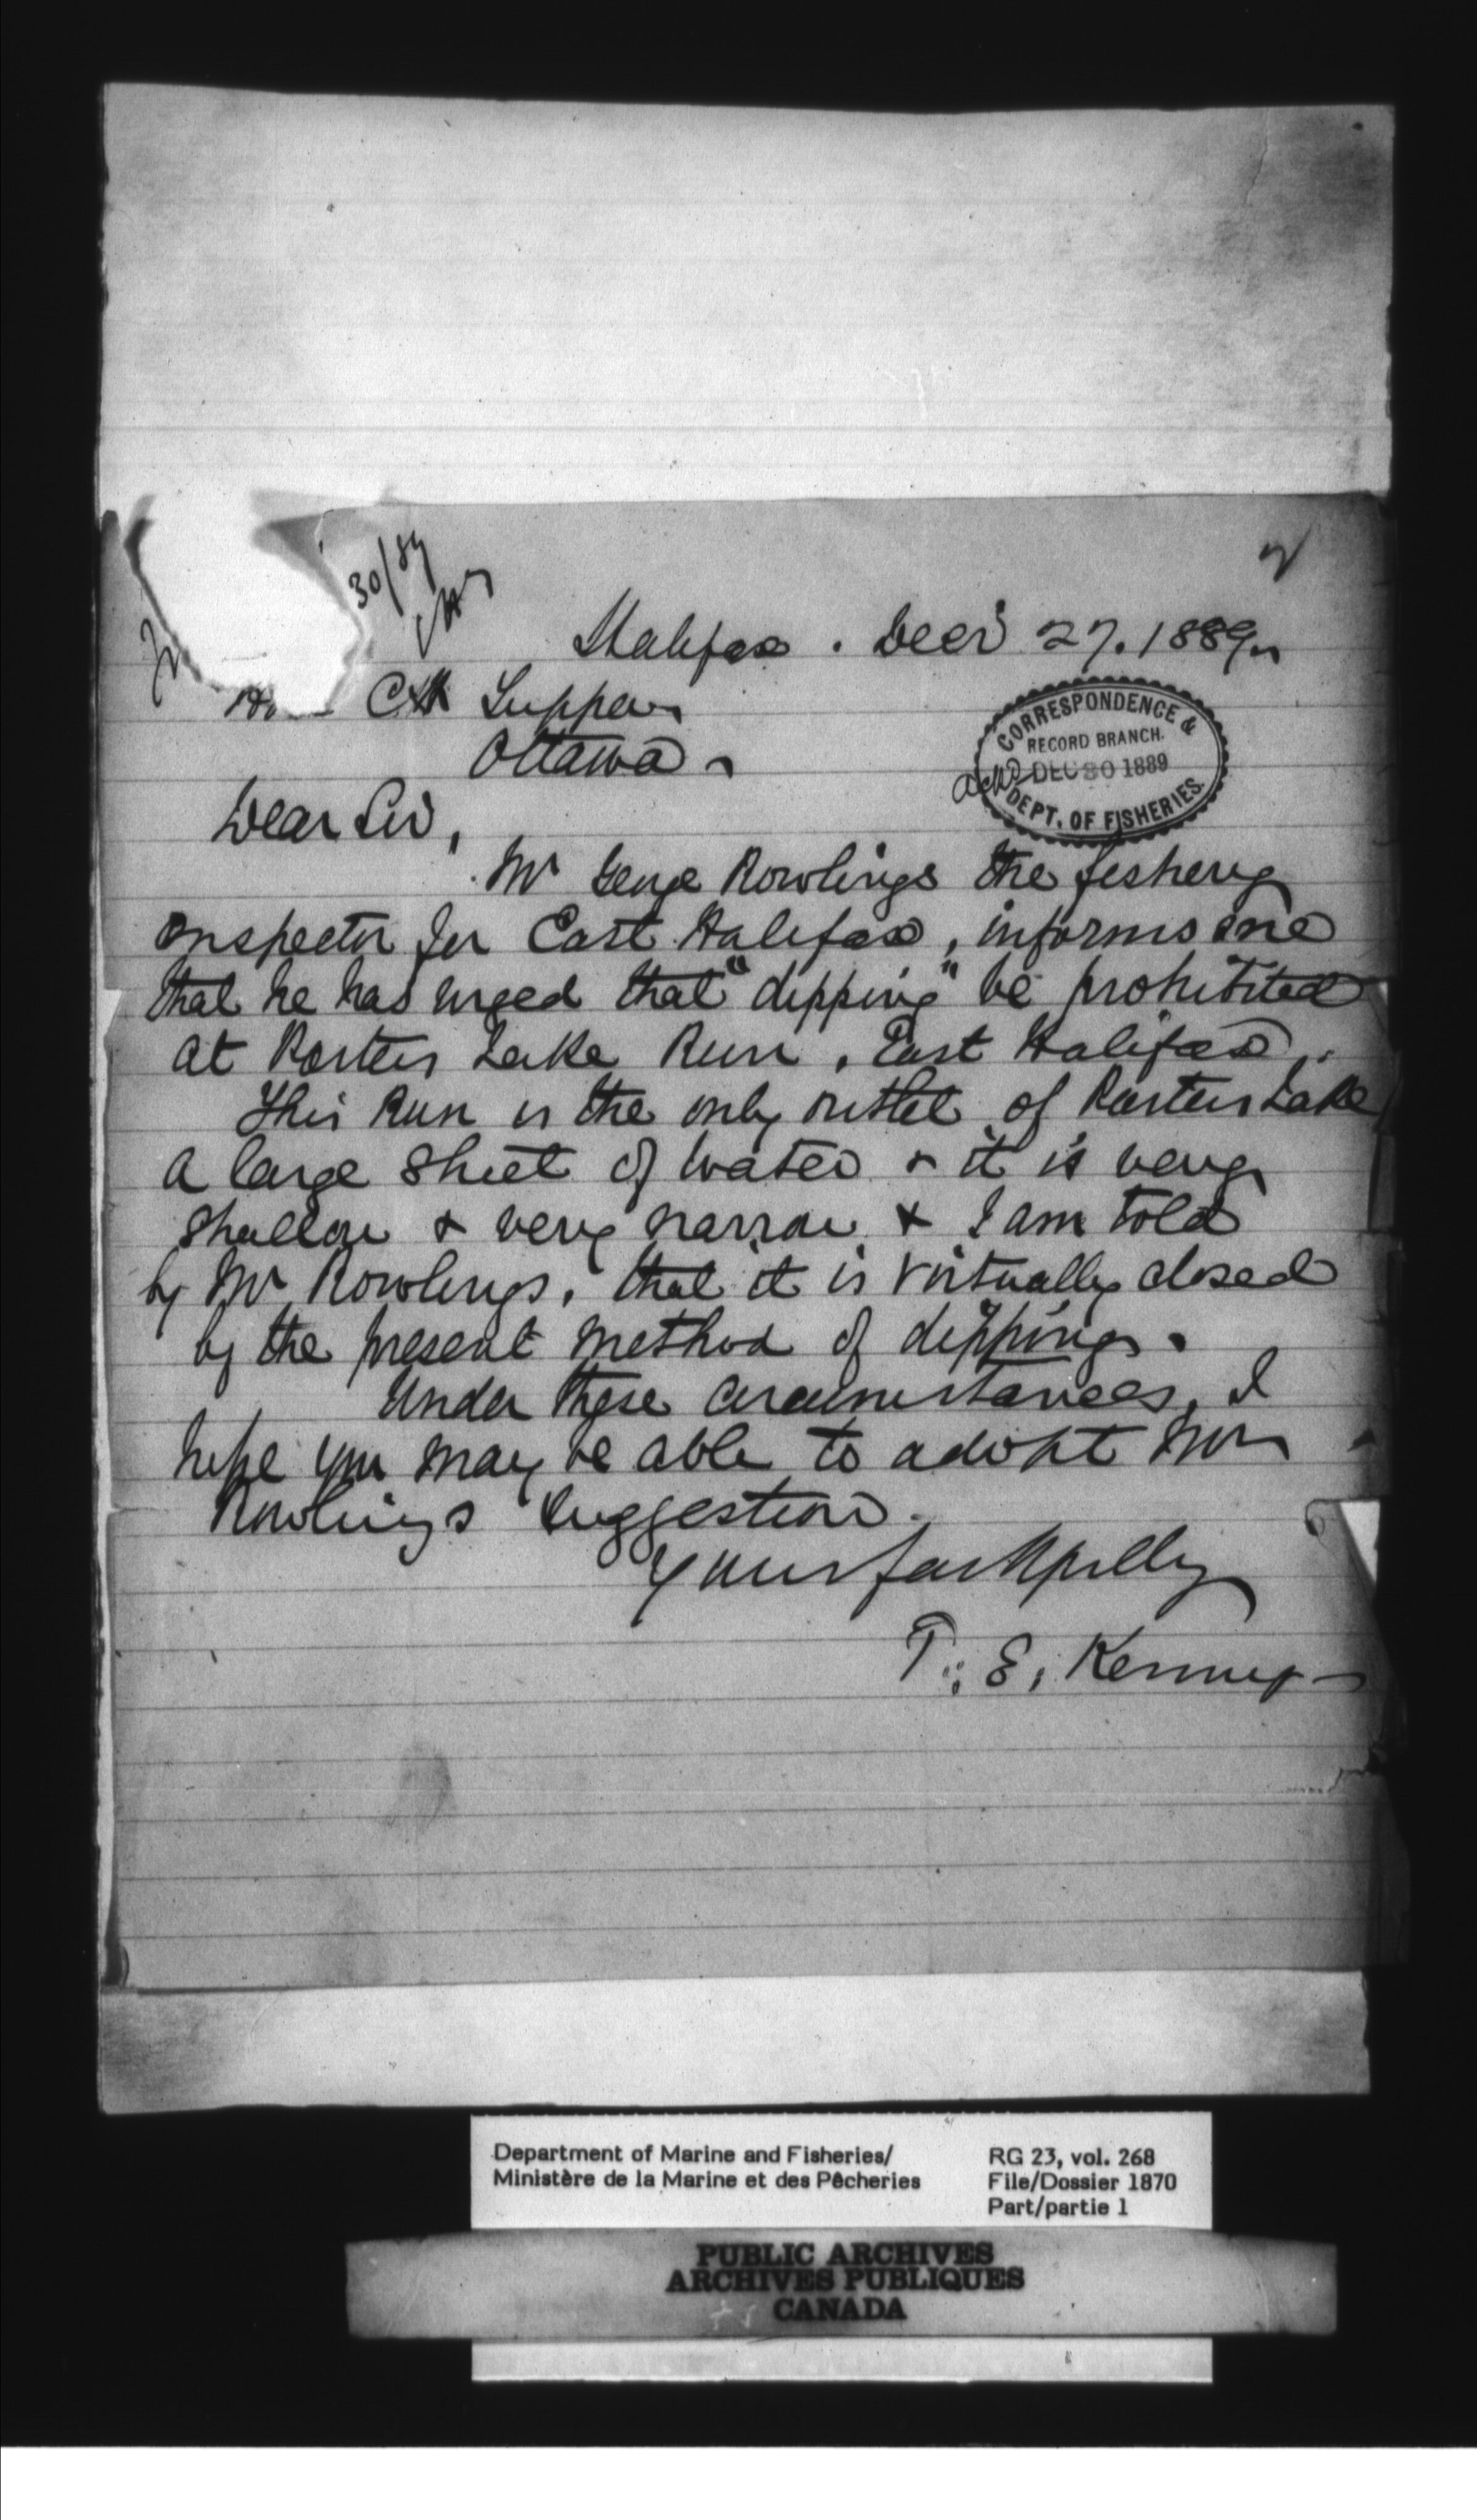 30/89
CHT
Halifax. Decr 27. 1889
Hon C H Tupper
Ottawa
CORRESPONDENCE &
RECORD BRANCH.
DEC 30 1889
DEPT. OF FISHERIES.
Ackd
Dear Sir,
Mr George Rowlings the fishery
Inspector for East Halifax, informs me
that he has urged that "dipping" be prohibited
at Porters Lake Run, East Halifax.
This Run is the only outlet of Porters Lake
a large sheet of water & it is very
shallow & very narrow & I am told
by Mr Rowlings, that it is virtually closed
by the present method of dipping.
Under these circumstances, I
hope you may be able to adopt Mr
Rowlings suggestion.
Yours faithfully
T. E. Kenny
Department of Marine and Fisheries/
Ministère de la Marine et des Pêcheries
RG 23, vol. 268
File/Dossier 1870
Part/partie 1
PUBLIC ARCHIVES
ARCHIVES PUBLIQUES
CANADA